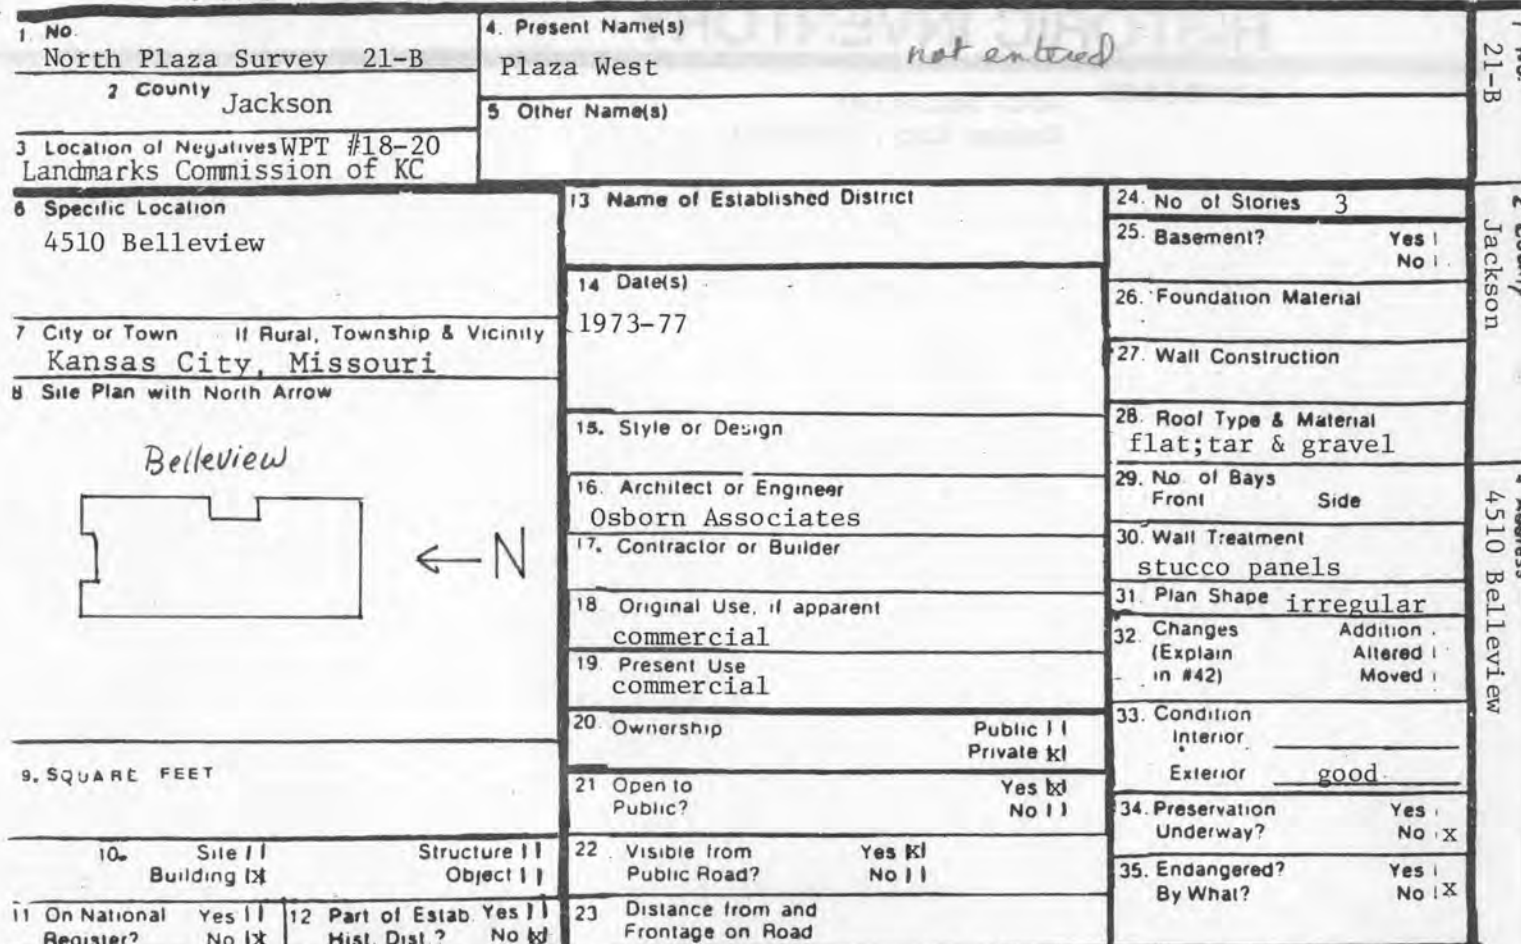 1. No.
North Plaza Survey 21-B
2 County Jackson
3 Location of Negatives WPT #18-20
Landmarks Commission of KC
4. Present Name(s)
Plaza West
not entered
5 Other Name(s)
6 Specific Location
4510 Belleview
7 City or Town If Rural, Township & Vicinity
Kansas City, Missouri
8 Site Plan with North Arrow
Belleview
N
9. SQUARE FEET
10. Site
Building X
Structure
Object
11 On National Register? Yes No X
12 Part of Estab. Hist. Dist.? Yes No X
13 Name of Established District
14 Date(s)
1973-77
15. Style or Design
16. Architect or Engineer
Osborn Associates
17. Contractor or Builder
18 Original Use, if apparent
commercial
19. Present Use
commercial
20. Ownership Public
Private X
21 Open to Yes X
Public? No
22 Visible from Yes X
Public Road? No
23 Distance from and
Frontage on Road
24. No of Stories 3
25. Basement? Yes
No
26. Foundation Material
27. Wall Construction
28. Roof Type & Material
flat;tar & gravel
29. No. of Bays
Front Side
30. Wall Treatment
stucco panels
31. Plan Shape irregular
32. Changes Addition
(Explain Altered
in #42) Moved
33. Condition
Interior
Exterior good
34. Preservation Yes
Underway? No x
35. Endangered? Yes
By What? No x
1 No.
21-B
2 County
Jackson
4 Address
4510 Belleview